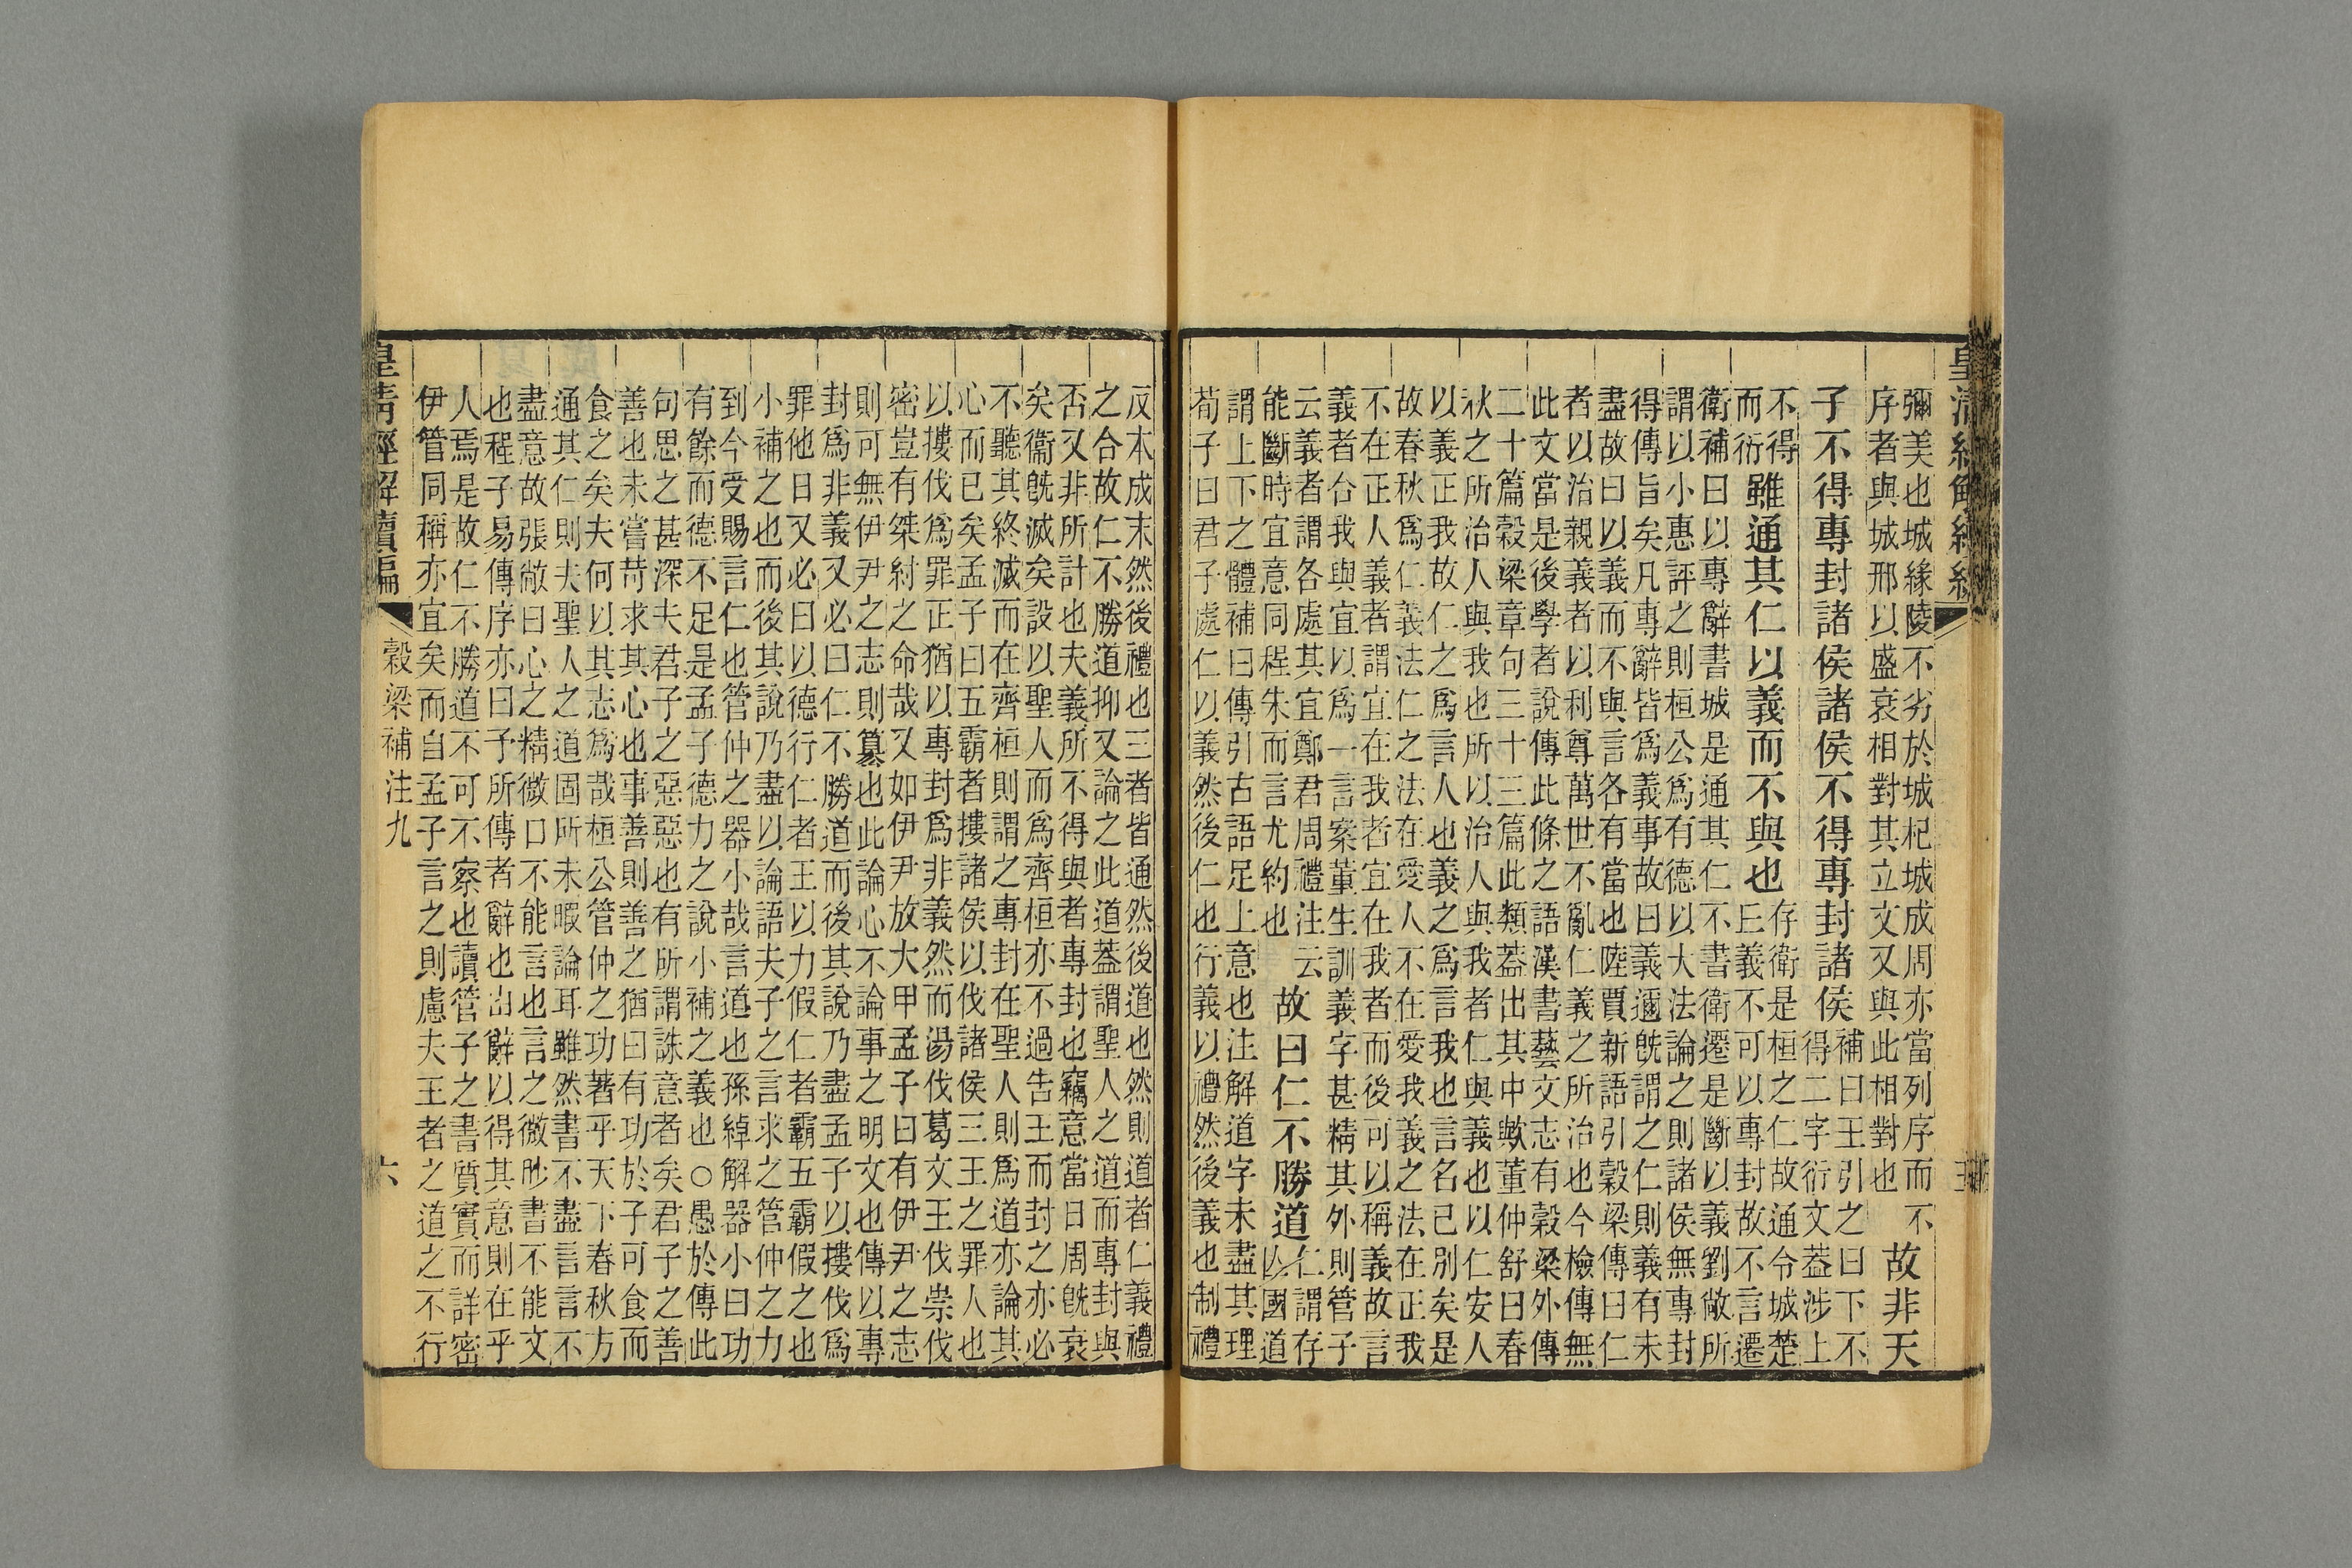 皇清經解續編
彌美也城緣陵不劣於城杞城成周亦當列序而不
序者與城邢以盛衰相對其立文又與此相對也
故非天
子不得專封諸侯諸侯不得專封諸侯
補曰王引之曰下不
得二字衍文蓋涉上
不得
而衍
雖通其仁以義而不與也
存衛是桓之仁故通令城楚
曰義不可以專封故不言遷
衛補曰以專辭書城是通其仁不書衛遷是斷以義劉敞所
謂以小惠評之則桓公爲有德以大法論之則諸侯無專封
得傳旨矣凡專辭皆爲義事故曰義邇旣謂之仁則義有未
盡故曰以義而不與言各有當也陸賈新語引穀梁傳曰仁
者以治親義者以利尊萬世不亂仁義之所治也今檢傳無
此文當是後學者說傳此條之語漢書藝文志有穀梁外傳
二十篇穀梁章句三十三篇此類蓋出其中歟董仲舒曰春
秋之所治人與我也所以治人與我者仁與義也以仁安人
以義正我故仁之爲言人也義之爲言我也言名已別矣是
故春秋爲仁義法仁之法在愛人不在愛我義之法在正我
不在正人義者謂宜在我者宜在我者而後可以稱義故言
義者合我與宜以爲一言案董生訓義字甚精其外則管子
云義者謂各處其宜鄭君周禮注云
能斷時宜意同程朱而言尤約也
故曰仁不勝道
仁謂存
亾國道
謂上下之體補曰傳引古語足上意也注解道字未盡其理
荀子曰君子處仁以義然後仁也行義以禮然後義也制禮
反本成末然後禮也三者皆通然後道也然則道者仁義禮
之合故仁不勝道抑又論之此道蓋謂聖人之道而專封與
否又非所計也夫義所不得與者專封也竊意當日周旣衰
矣衞旣滅矣設以聖人而爲齊桓亦不過告王而封之亦必
不聽其終滅而在齊桓則謂之專封在聖人則爲道亦論其
心而已矣孟子曰五霸者摟諸侯以伐諸侯三王之罪人也
以摟伐爲罪正猶以專封爲非義然而湯伐葛文王伐崇伐
密豈有桀紂之命哉又如伊尹放大甲孟子曰有伊尹之志
則可無伊尹之志則篡也此論心不論事之明文也傳以專
封爲非義又必曰仁不勝道而後其說乃盡孟子以摟伐爲
罪他日又必曰以德行仁者王以力假仁者霸五霸假之也
小補之也而後其說乃盡以論語夫子之言求之管仲之力
到今受賜言仁也管仲之器小哉言道也孫綽解器小曰功
有餘而德不足是孟子德力之說小補之義也○愚於傳此
句思之甚深夫君子之惡惡也有所謂誅意者矣君子之善
善也未嘗苛求其心也事善則善之猶曰有功於子可食而
食之矣夫何以其志爲哉桓公管仲之功著乎天下春秋方
通其仁則夫聖人之道固所未暇論耳雖然書不盡言言不
盡意故張敞曰心之精微口不能言也言之微眇書不能文
也程子易傳序亦曰予所傳者辭也由辭以得其意則在乎
人焉是故仁不勝道不可不察也讀管子之書質實而詳密
伊管同稱亦宜矣而自孟子言之則慮夫王者之道之不行
皇清經解續編
穀梁補注九
六